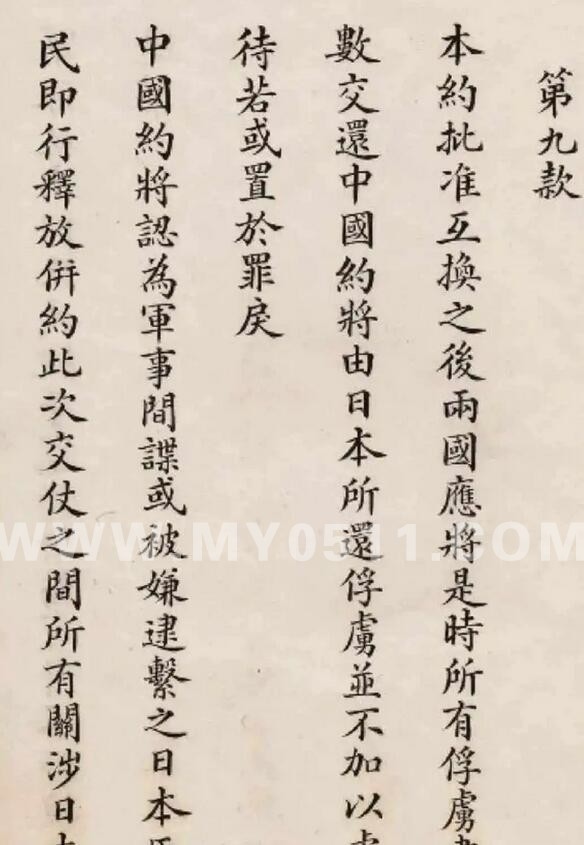 第九款
本約批准互換之後兩國應將是時所有俘虜
數交還中國約將由日本所還俘虜並不加以
待若或置於罪戾
中國約將認為軍事間諜或被嫌逮繫之日本
民即行釋放併約此次交仗之間所有關涉日
WWW.MY0511.COM